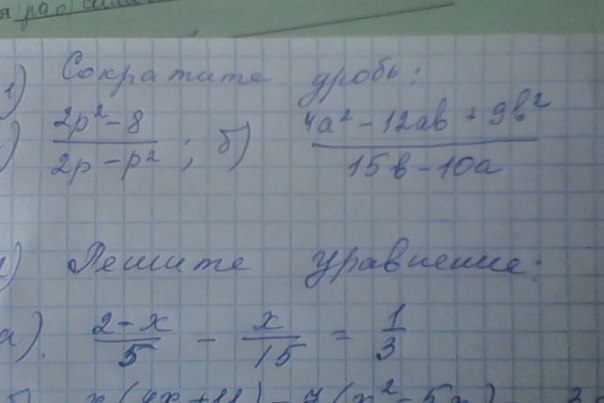 1) Сократите дробь:
(2p² - 8)/(2p - p²) ; б) (4a² - 12ab + 9b²)/(15b - 10a)
) Решите уравнение:
а). (2-x)/5 - x/15 = 1/3